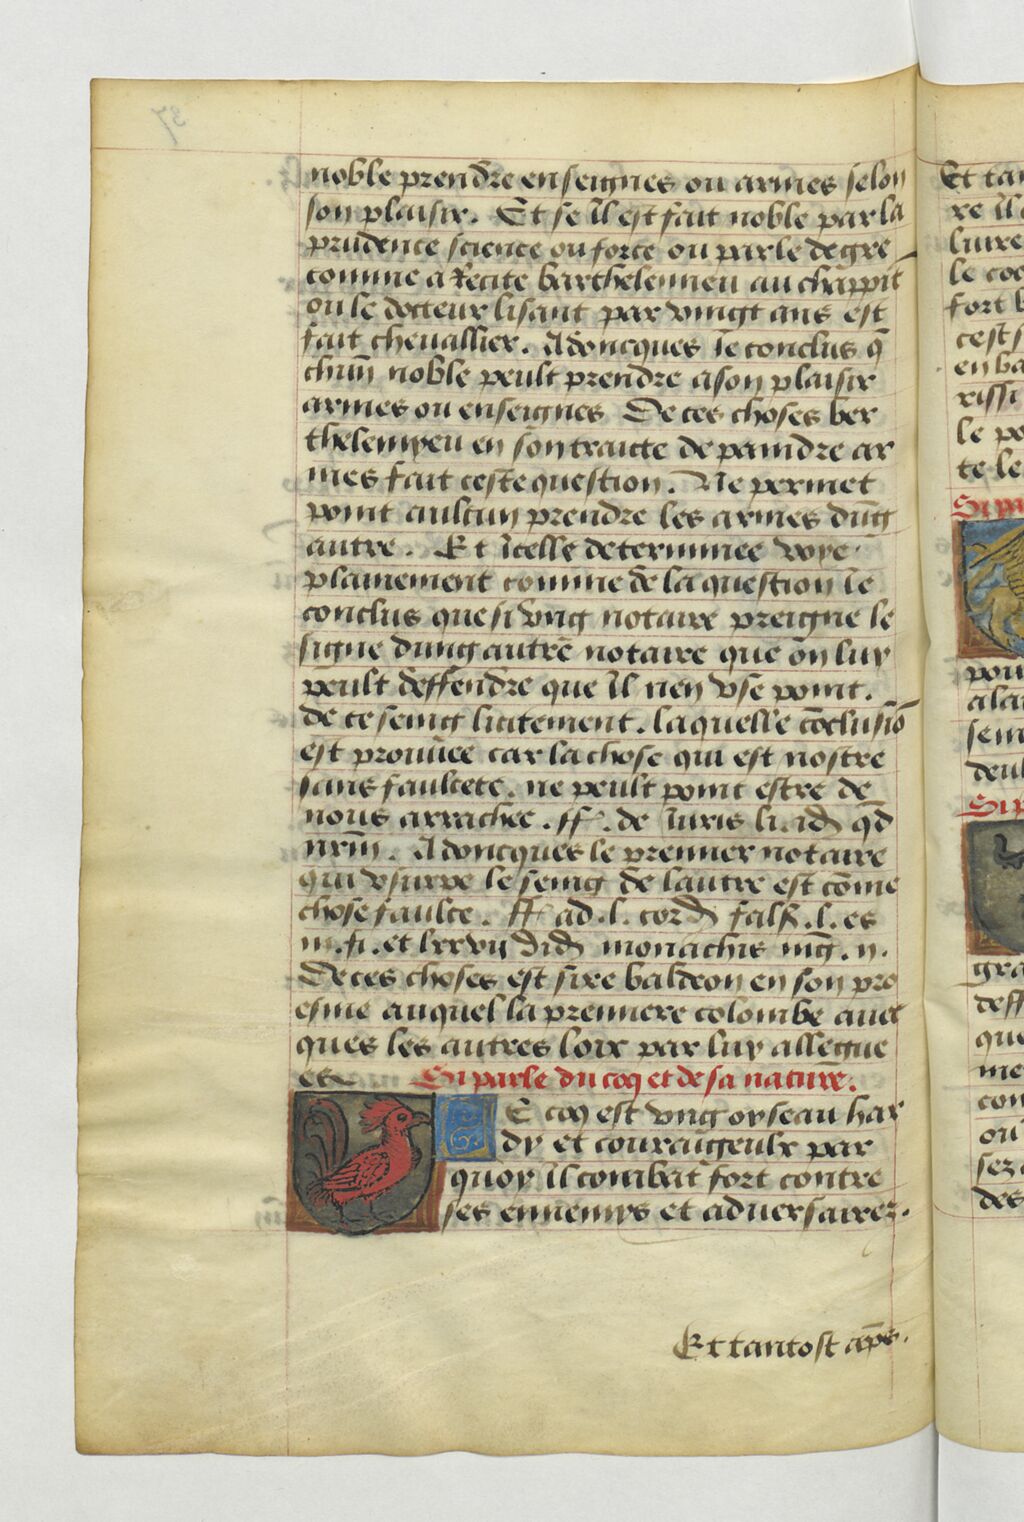 noble prendre enseignes ou armes selon
son plaisir. Et se il est fait noble par la
prudence science ou force ou par le degre
comme a recite barthelemieu au chappit
ou le docteur lisant par vingt ans est
fait chevallier. Adoncques ie conclus q̄
chm̄ noble peult prendre a son plaisir
armes ou enseignes De ces choses ber
thelemyeu en son traicte de paindre ar
mes fait ceste question. Ne permet
point aulcun prendre les armes dung
autre. Et icelle determinee voye.
plainement comme de la question ie
conclus que si vng notaire preigne le
signe dung autre notaire que on luy
peult deffendre que il nen vse point.
de ce seing licitement. laquelle cōclusiō
est prouuee car la chose qui est nostre
sans faulcete. ne peult point estre de
nous arrachee. ff. de iuris li. id qd
nr̄m. Adoncques le premier notaire
qui vsurpe le seing de lautre est cōme
chose faulce. ff ad .l. cord fals .l. es
et lxxvij monachis
De ces choses est sire baldeon en son pro
esme auquel la premiere colombe auec
ques les autres loix par luy allegue
etc Si parle du coq et de sa nature.
E coq est vng oyseau har
dy et couraugeulx par
quoy il combat fort contre
ses ennemys et aduersairez.
Et tantost ap̄s.
37
Et tan
re il
liure
le coc
fort
cest s
en ba
rissi
le po
te le
Si pa
pou
alai
sem
deul
Si p
gra
deff
que
me
con
ou
sez
des